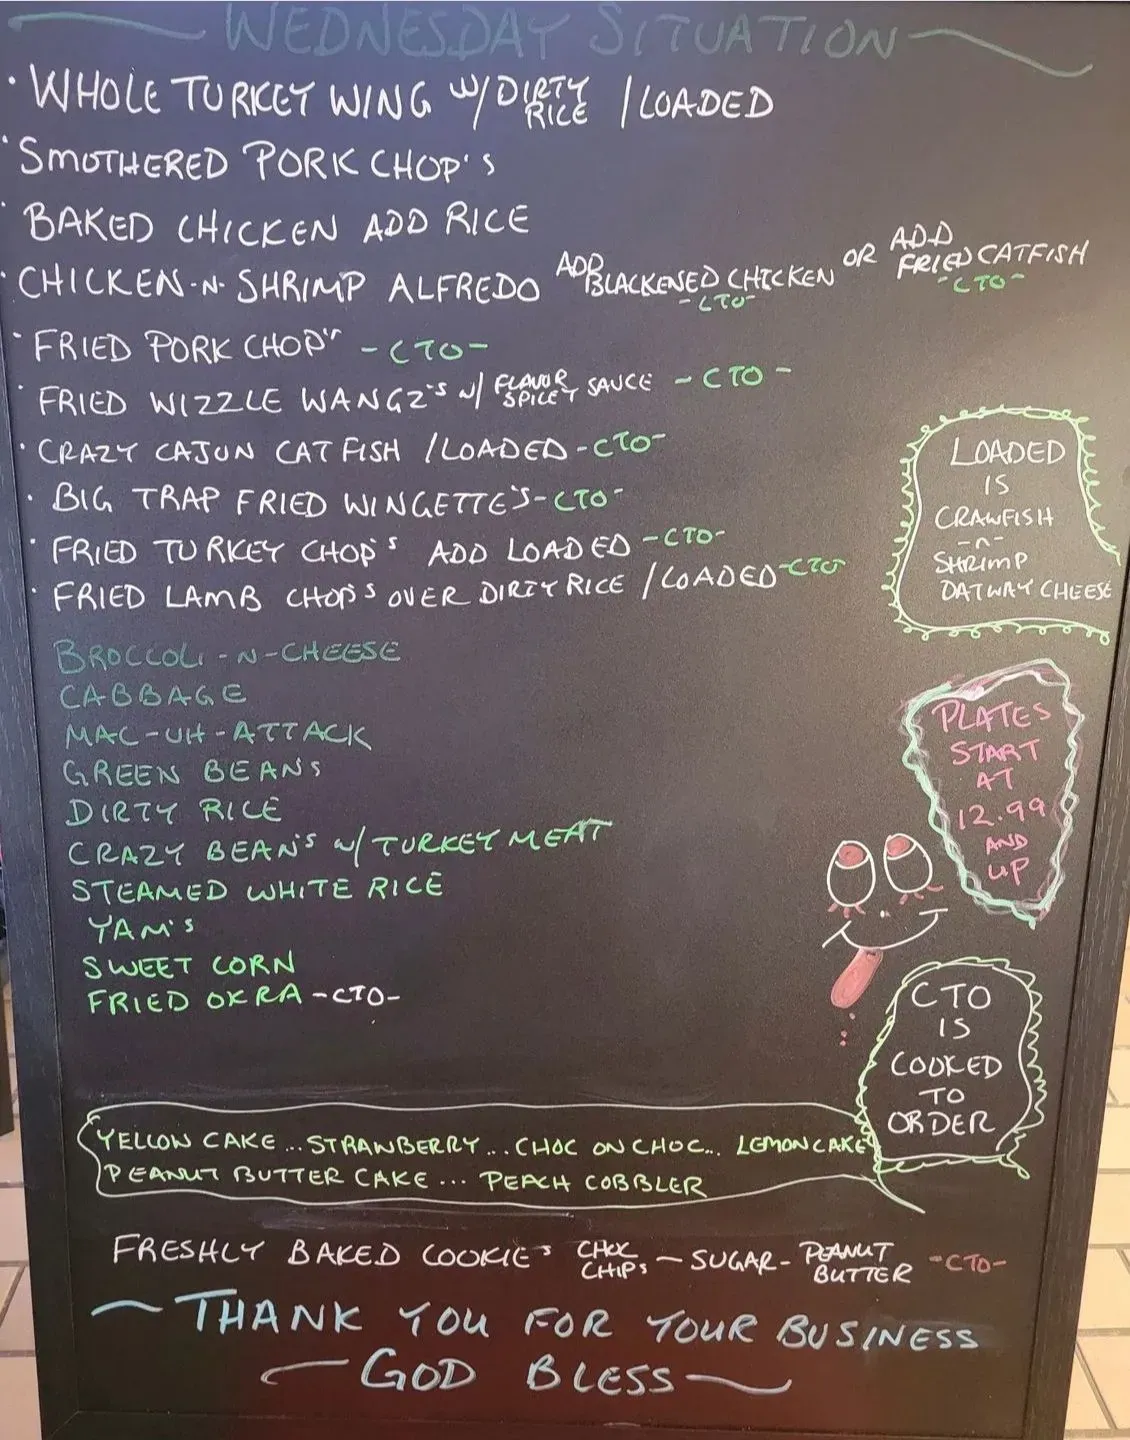 WEDNESDAY SITUATION
· WHOLE TURKEY WING W/ DIRTY RICE / LOADED
· SMOTHERED PORK CHOP'S
· BAKED CHICKEN ADD RICE
· CHICKEN-N-SHRIMP ALFREDO ADD BLACKENED CHICKEN -CTO- OR ADD FRIED CATFISH -CTO-
· FRIED PORK CHOP" -CTO-
· FRIED WIZZLE WANGZ'S W/ FLAVOR SPICEY SAUCE -CTO-
· CRAZY CAJUN CATFISH /LOADED -CTO-
· BIG TRAP FRIED WINGETTE'S -CTO-
· FRIED TURKEY CHOP'S ADD LOADED -CTO-
· FRIED LAMB CHOP'S OVER DIRTY RICE /LOADED -CTO
LOADED
IS
CRAWFISH
-N-
SHRIMP
DATWAY CHEESE
BROCCOLI-N-CHEESE
CABBAGE
MAC-UH-ATTACK
GREEN BEANS
DIRTY RICE
CRAZY BEAN'S W/ TURKEY MEAT
STEAMED WHITE RICE
YAM'S
SWEET CORN
FRIED OKRA -CTO-
PLATES
START
AT
12.99
AND
UP
CTO
IS
COOKED
TO
ORDER
YELLOW CAKE ... STRAWBERRY ... CHOC ON CHOC... LEMON CAKE
PEANUT BUTTER CAKE ... PEACH COBBLER
FRESHLY BAKED COOKIE'S CHOC CHIPS - SUGAR - PEANUT BUTTER -CTO-
THANK YOU FOR YOUR BUSINESS
GOD BLESS